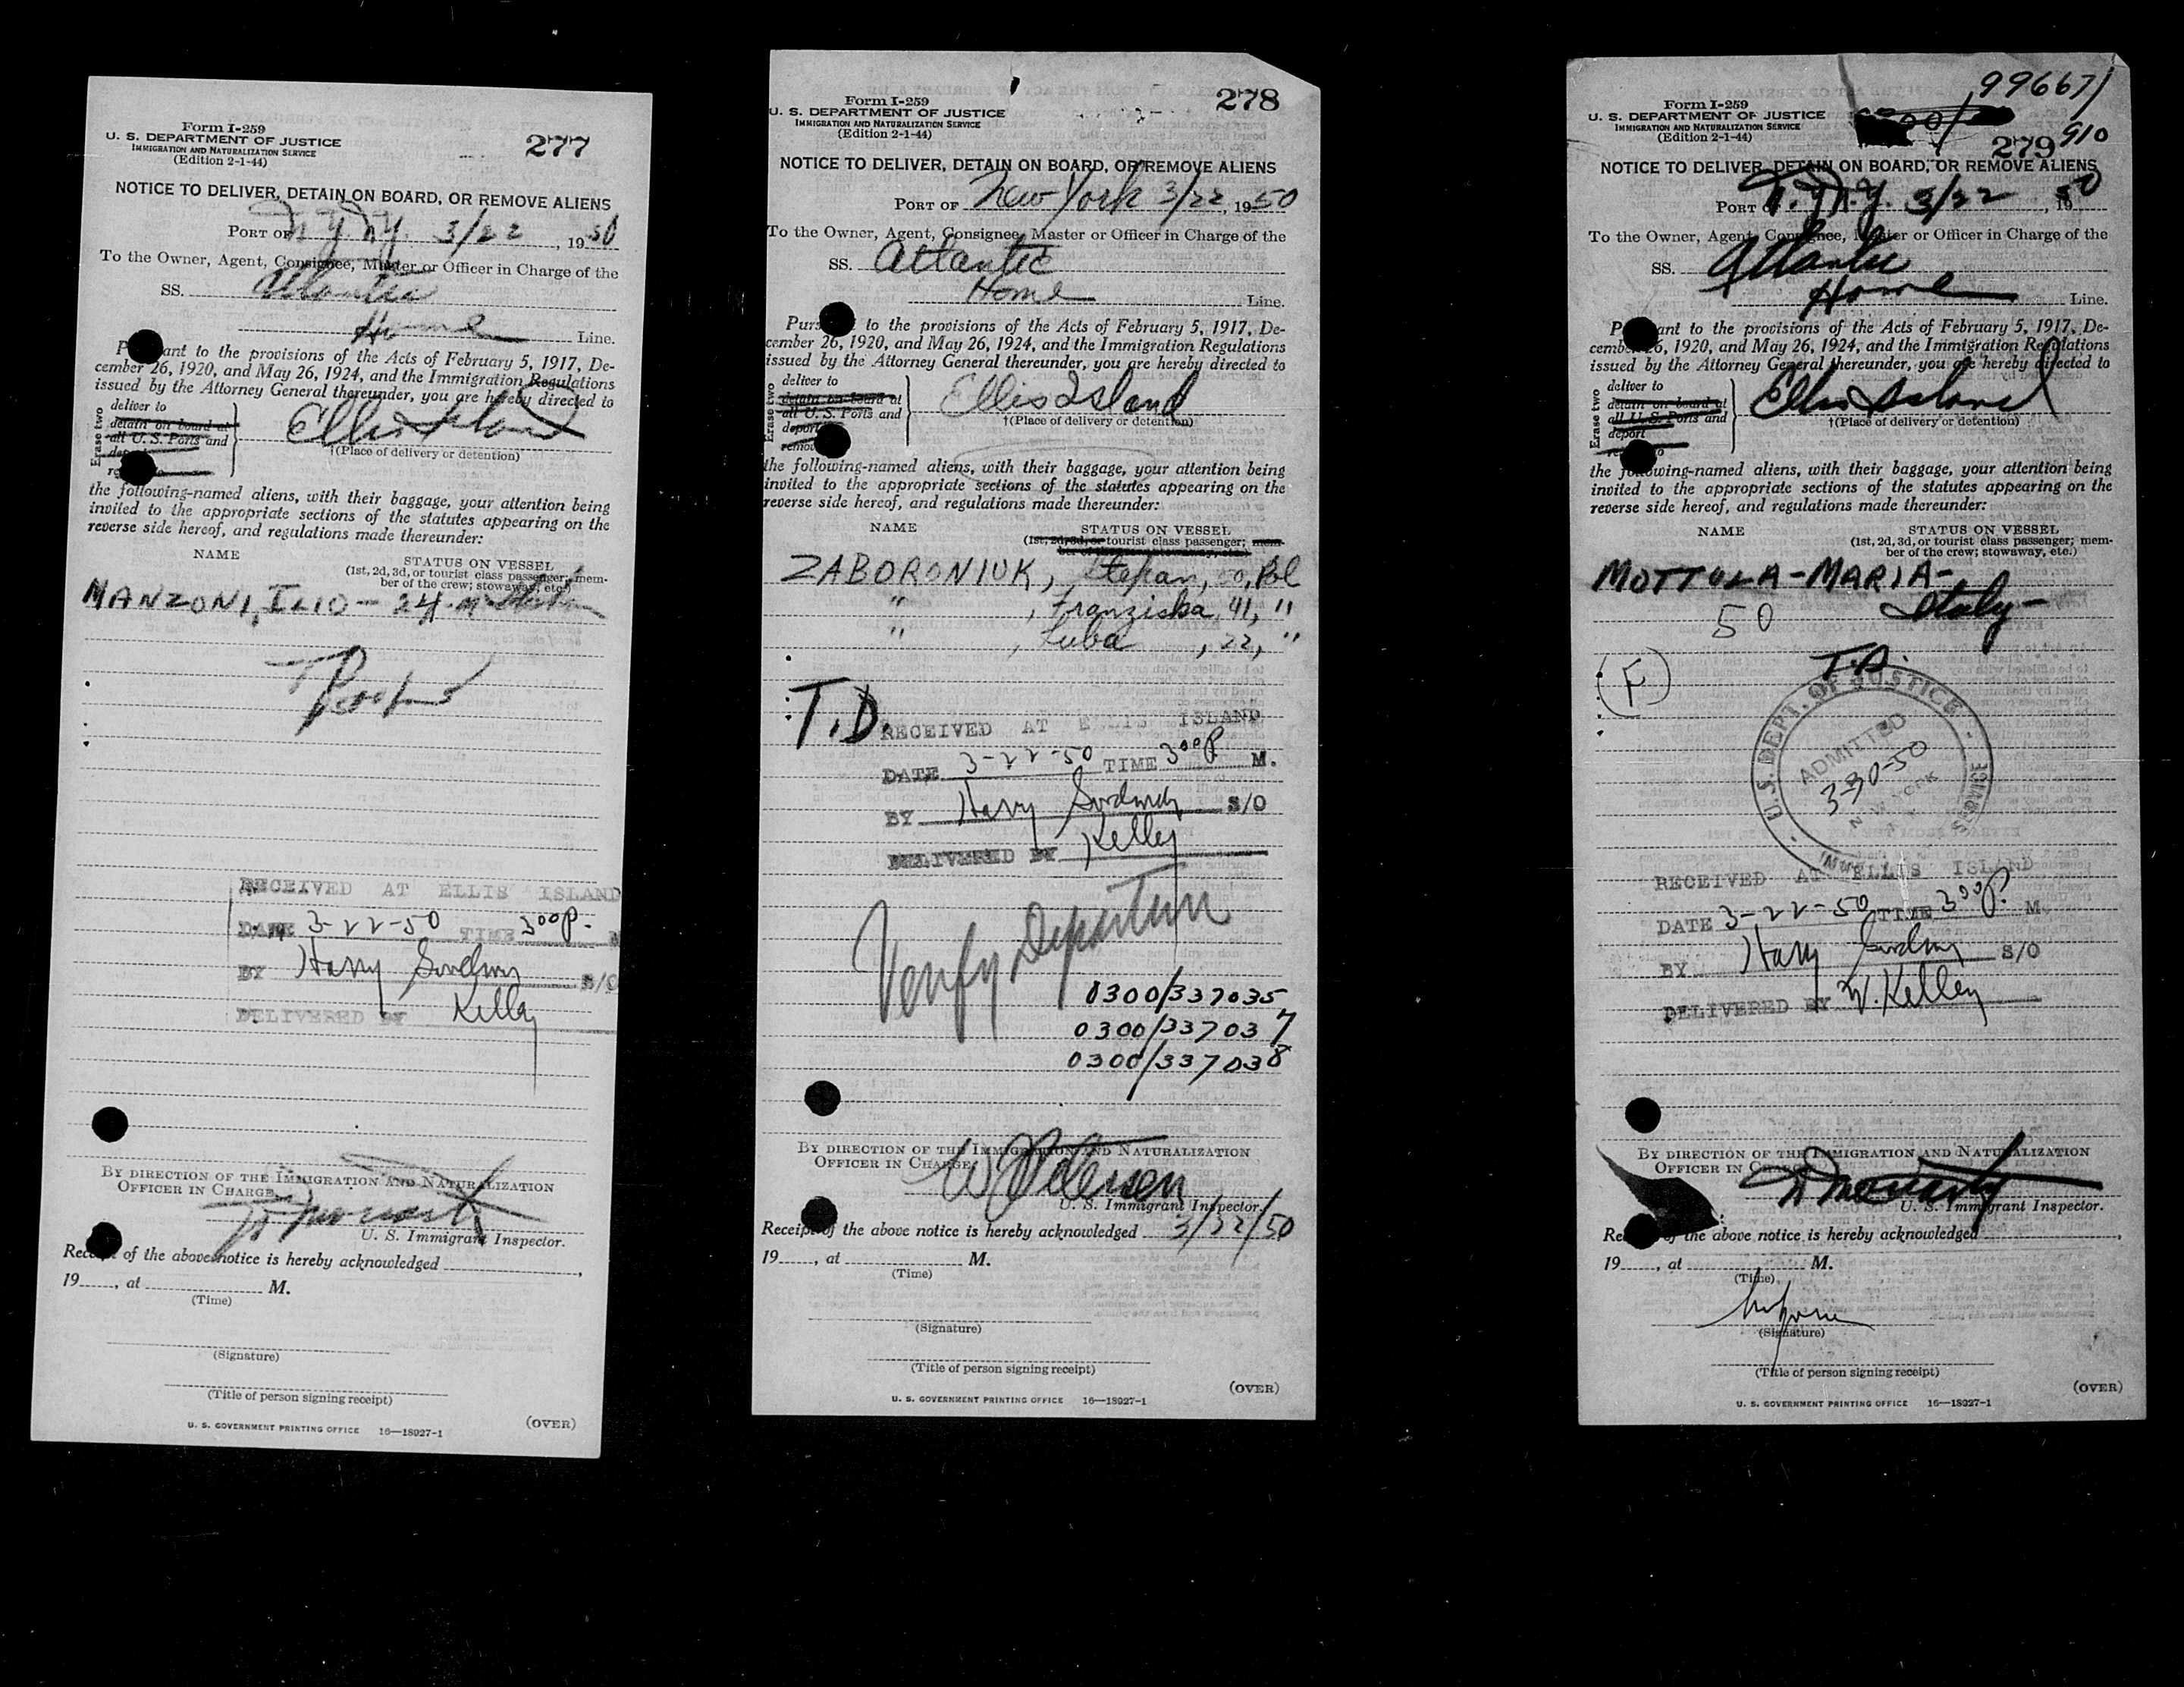 Form I-259
U. S. DEPARTMENT OF JUSTICE
IMMIGRATION AND NATURALIZATION SERVICE
(Edition 2-1-44)
277
NOTICE TO DELIVER, DETAIN ON BOARD, OR REMOVE ALIENS
PORT OF N.Y.N.Y. 3/22, 1950
To the Owner, Agent, Consignee, Master or Officer in Charge of the
SS. Atlantic
Home Line.
ant to the provisions of the Acts of February 5, 1917, De-
cember 26, 1920, and May 26, 1924, and the Immigration Regulations
issued by the Attorney General thereunder, you are hereby directed to
Erase two
deliver to
detain on board at
all U. S. Ports and
Ellis Island
†(Place of delivery or detention)
the following-named aliens, with their baggage, your attention being
invited to the appropriate sections of the statutes appearing on the
reverse side hereof, and regulations made thereunder:
NAME
STATUS ON VESSEL
(1st, 2d, 3d, or tourist class passenger; mem-
ber of the crew; stowaway, etc.)
MANZONI, ILIO - 24. m
RECEIVED AT ELLIS ISLAND
DATE 3-22-50 TIME 3 00 P. M
BY Harry S/O
DELIVERED BY Kelley
BY DIRECTION OF THE IMMIGRATION AND NATURALIZATION
OFFICER IN CHARGE
U. S. Immigrant Inspector.
Receipt of the above notice is hereby acknowledged ,
19 , at M.
(Time)
(Signature)
(Title of person signing receipt)
U. S. GOVERNMENT PRINTING OFFICE 16—18927-1
(OVER)
Form I-259
U. S. DEPARTMENT OF JUSTICE
IMMIGRATION AND NATURALIZATION SERVICE
(Edition 2-1-44)
278
NOTICE TO DELIVER, DETAIN ON BOARD, OR REMOVE ALIENS
PORT OF New York 3/22, 1950
To the Owner, Agent, Consignee, Master or Officer in Charge of the
SS. Atlantic
Home Line.
Purs to the provisions of the Acts of February 5, 1917, De-
cember 26, 1920, and May 26, 1924, and the Immigration Regulations
issued by the Attorney General thereunder, you are hereby directed to
Erase two
deliver to
detain on board at
all U. S. Ports and
deport
remo
Ellis Island
†(Place of delivery or detention)
the following-named aliens, with their baggage, your attention being
invited to the appropriate sections of the statutes appearing on the
reverse side hereof, and regulations made thereunder:
NAME
STATUS ON VESSEL
(1st, 2d, 3d, or tourist class passenger; mem-
ber of the crew; stowaway, etc.)
ZABORONIUK, Stepan, Pol
" , Franziska, 41, "
" , Luba , 22, "
T.D.
RECEIVED AT ELLIS ISLAND
DATE 3-22-50 TIME 3 00 P M.
BY Harry S/O
DELIVERED BY Kelley
Verify Departure
0300/337035
0300/337037
0300/337038
BY DIRECTION OF THE IMMIGRATION AND NATURALIZATION
OFFICER IN CHARGE:
U. S. Immigrant Inspector.
Receipt of the above notice is hereby acknowledged 3/22/50
19 , at M.
(Time)
(Signature)
(Title of person signing receipt)
(OVER)
U. S. GOVERNMENT PRINTING OFFICE 16—18927-1
99667/
910
Form I-259
U. S. DEPARTMENT OF JUSTICE
IMMIGRATION AND NATURALIZATION SERVICE
(Edition 2-1-44)
279
NOTICE TO DELIVER, DETAIN ON BOARD, OR REMOVE ALIENS
PORT OF N.Y.N.Y. 3/22, 1950
To the Owner, Agent, Consignee, Master or Officer in Charge of the
SS. Atlantic
Home Line.
P ant to the provisions of the Acts of February 5, 1917, De-
cember 26, 1920, and May 26, 1924, and the Immigration Regulations
issued by the Attorney General thereunder, you are hereby directed to
Erase two
deliver to
detain on board at
all U. S. Ports and
deport
Ellis Island
†(Place of delivery or detention)
the following-named aliens, with their baggage, your attention being
invited to the appropriate sections of the statutes appearing on the
reverse side hereof, and regulations made thereunder:
NAME
STATUS ON VESSEL
(1st, 2d, 3d, or tourist class passenger; mem-
ber of the crew; stowaway, etc.)
MOTTOLA-MARIA-
50 Italy-
F
T.D.
U.S. DEPT. OF JUSTICE
ADMITTED
3-30-50
NEW YORK
RECEIVED AT ELLIS ISLAND
DATE 3-22-50 TIME 3 00 P. M.
BY Harry S/O
DELIVERED BY W. Kelley
BY DIRECTION OF THE IMMIGRATION AND NATURALIZATION
OFFICER IN CHARGE
U. S. Immigrant Inspector.
Re of the above notice is hereby acknowledged ,
19 , at M.
(Time)
(Signature)
(Title of person signing receipt)
(OVER)
U. S. GOVERNMENT PRINTING OFFICE 16—18927-1